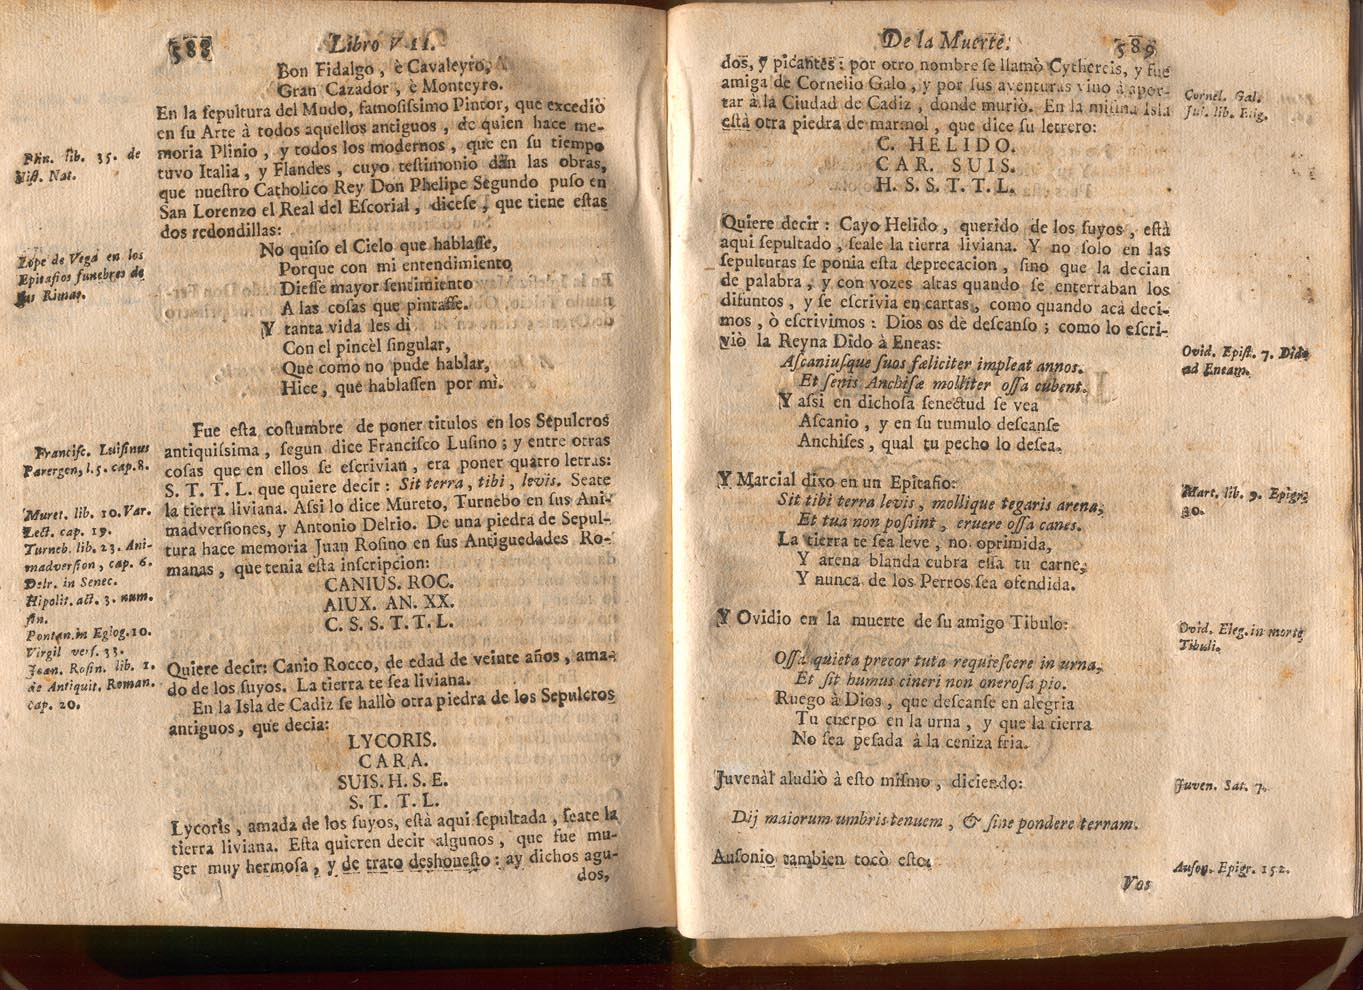 588
Libro VII.
Bon Fidalgo, è Cavaleyro,
Gran Cazador, è Monteyro.
En la ſepultura del Mudo, famoſiſsimo Pintor, que excedió
en ſu Arte à todos aquellos antiguos, de quien hace me-
moria Plinio, y todos los modernos, que en ſu tiempo
tuvo Italia, y Flandes, cuyo teſtimonio dàn las obras,
que nueſtro Catholico Rey Don Phelipe Segundo puſo en
San Lorenzo el Real del Eſcorial, diceſe, que tiene eſtas
dos redondillas:
Plin. lib. 35. de
Hiſt. Nat.
No quiſo el Cielo que hablaſſe,
Porque con mi entendimiento
Dieſſe mayor ſentimiento
A las coſas que pintaſſe.
Y tanta vida les di
Con el pincèl ſingular,
Que como no pude hablar,
Hice, que hablaſſen por mì.
Lope de Vega en los
Epitafios funebres de
ſus Rimas.
Fue eſta coſtumbre de poner titulos en los Sepulcros
antiquiſsima, ſegun dice Franciſco Luſino; y entre otras
coſas que en ellos ſe eſcrivian, era poner quatro letras:
S. T. T. L. que quiere decir: Sit terra, tibi, levis. Seate
la tierra liviana. Aſsi lo dice Mureto, Turnebo en ſus Ani-
madverſiones, y Antonio Delrio. De una piedra de Sepul-
tura hace memoria Juan Roſino en ſus Antiguedades Ro-
manas, que tenia eſta inſcripcion:
CANIUS. ROC.
AIUX. AN. XX.
C. S. S. T. T. L.
Quiere decir: Canio Rocco, de edad de veinte años, ama-
do de los ſuyos. La tierra te ſea liviana.
En la Isla de Cadiz ſe hallò otra piedra de los Sepulcros
antiguos, que decia:
LYCORIS.
CARA.
SUIS. H. S. E.
S. T. T. L.
Lycoris, amada de los ſuyos, eſtà aqui ſepultada, ſeate la
tierra liviana. Eſta quieren decir algunos, que fue mu-
ger muy hermoſa, y de trato deshoneſto: ay dichos agu-
dos,
Franciſc. Luiſinus
Parergon, l. 5. cap. 8.
Muret. lib. 10. Var.
Lect. cap. 19.
Turneb. lib. 23. Ani-
madverſion, cap. 6.
Delr. in Senec.
Hipolit. act. 3. num.
fin.
Pontan. in Eglog. 10.
Virgil verſ. 33.
Joan. Roſin. lib. 1.
de Antiquit. Roman.
cap. 20.
De la Muerte.
589
dos, y picantes: por otro nombre ſe llamò Cythereis, y fue
amiga de Cornelio Galo, y por ſus aventuras vino à apor-
tar à la Ciudad de Cadiz, donde murió. En la miſma Isla
eſtà otra piedra de marmol, que dice ſu letrero:
Cornel. Gal.
lib. Elig.
C. HELIDO.
CAR. SUIS.
H. S. S. T. T. L.
Quiere decir: Cayo Helido, querido de los ſuyos, eſtà
aqui ſepultado, ſeale la tierra liviana. Y no ſolo en las
ſepulturas ſe ponia eſta deprecacion, ſino que la decian
de palabra, y con vozes altas quando ſe enterraban los
difuntos, y ſe eſcrivia en cartas, como quando acà deci-
mos, ò eſcrivimos: Dios os dè deſcanſo; como lo eſcri-
viò la Reyna Dido à Eneas:
Aſcaniuſque ſuos fæliciter impleat annos.
Et ſenis Anchiſæ molliter oſſa cubent.
Y aſsi en dichoſa ſenectud ſe vea
Aſcanio, y en ſu tumulo deſcanſe
Anchiſes, qual tu pecho lo deſea.
Ovid. Epiſt. 7. Dido
ad Eneam.
Y Marcial dixo en un Epitafio:
Sit tibi terra levis, mollique tegaris arena,
Et tua non poſsint, eruere oſſa canes.
La tierra te ſea leve, no oprimida,
Y arena blanda cubra eſſa tu carne,
Y nunca de los Perros ſea ofendida.
Mart. lib. 9. Epigr.
30.
Y Ovidio en la muerte de ſu amigo Tibulo:
Oſſa quieta precor tuta requieſcere in urna,
Et ſit humus cineri non oneroſa pio.
Ruego à Dios, que deſcanſe en alegria
Tu cuerpo en la urna, y que la tierra
No ſea peſada à la ceniza fria.
Ovid. Eleg. in morte
Tibuli.
Juvenàl aludiò à eſto miſmo, diciendo:
Dij maiorum umbris tenuem, & ſine pondere terram.
Juven. Sat. 7.
Auſonio tambien tocò eſto:
Auſon. Epigr. 152.
Vos